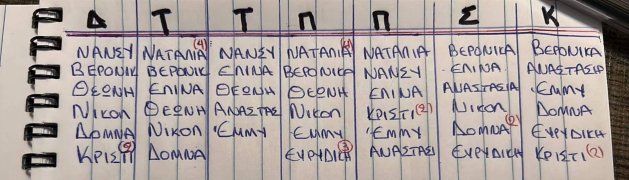 Δ Τ Τ Π Π Σ Κ
ΝΑΝΣΥ ΝΑΤΑΛΙΑ (4) ΝΑΝΣΥ ΝΑΤΑΛΙΑ ΝΑΤΑΛΙΑ ΒΕΡΟΝΙΚΑ ΒΕΡΟΝΙΚΑ
ΒΕΡΟΝΙΚ ΒΕΡΟΝΙΚ ΕΛΙΝΑ ΒΕΡΟΝΙΚΑ ΝΑΝΣΥ ΕΛΙΝΑ ΑΝΑΣΤΑΣΙΑ
ΘΕΩΝΗ ΕΛΙΝΑ ΘΕΩΝΗ ΘΕΩΝΗ ΕΛΙΝΑ ΑΝΑΣΤΑΣΙΑ ΈΜΜΥ
ΝΙΚΟΛ ΘΕΩΝΗ ΑΝΑΣΤΑΣ ΝΙΚΟΛ ΚΡΙΣΤΙ (2) ΝΙΚΟΛ ΔΟΜΝΑ
ΔΟΜΝΑ ΝΙΚΟΛ ΈΜΜΥ ΈΜΜΥ ΈΜΜΥ ΔΟΜΝΑ (2) ΕΥΡΥΔΙΚΗ
ΚΡΙΣΤΙ (2) ΔΟΜΝΑ ΕΥΡΥΔΙΚΗ (3) ΑΝΑΣΤΑΣΙ ΕΥΡΥΔΙΚΗ ΚΡΙΣΤΙ (2)